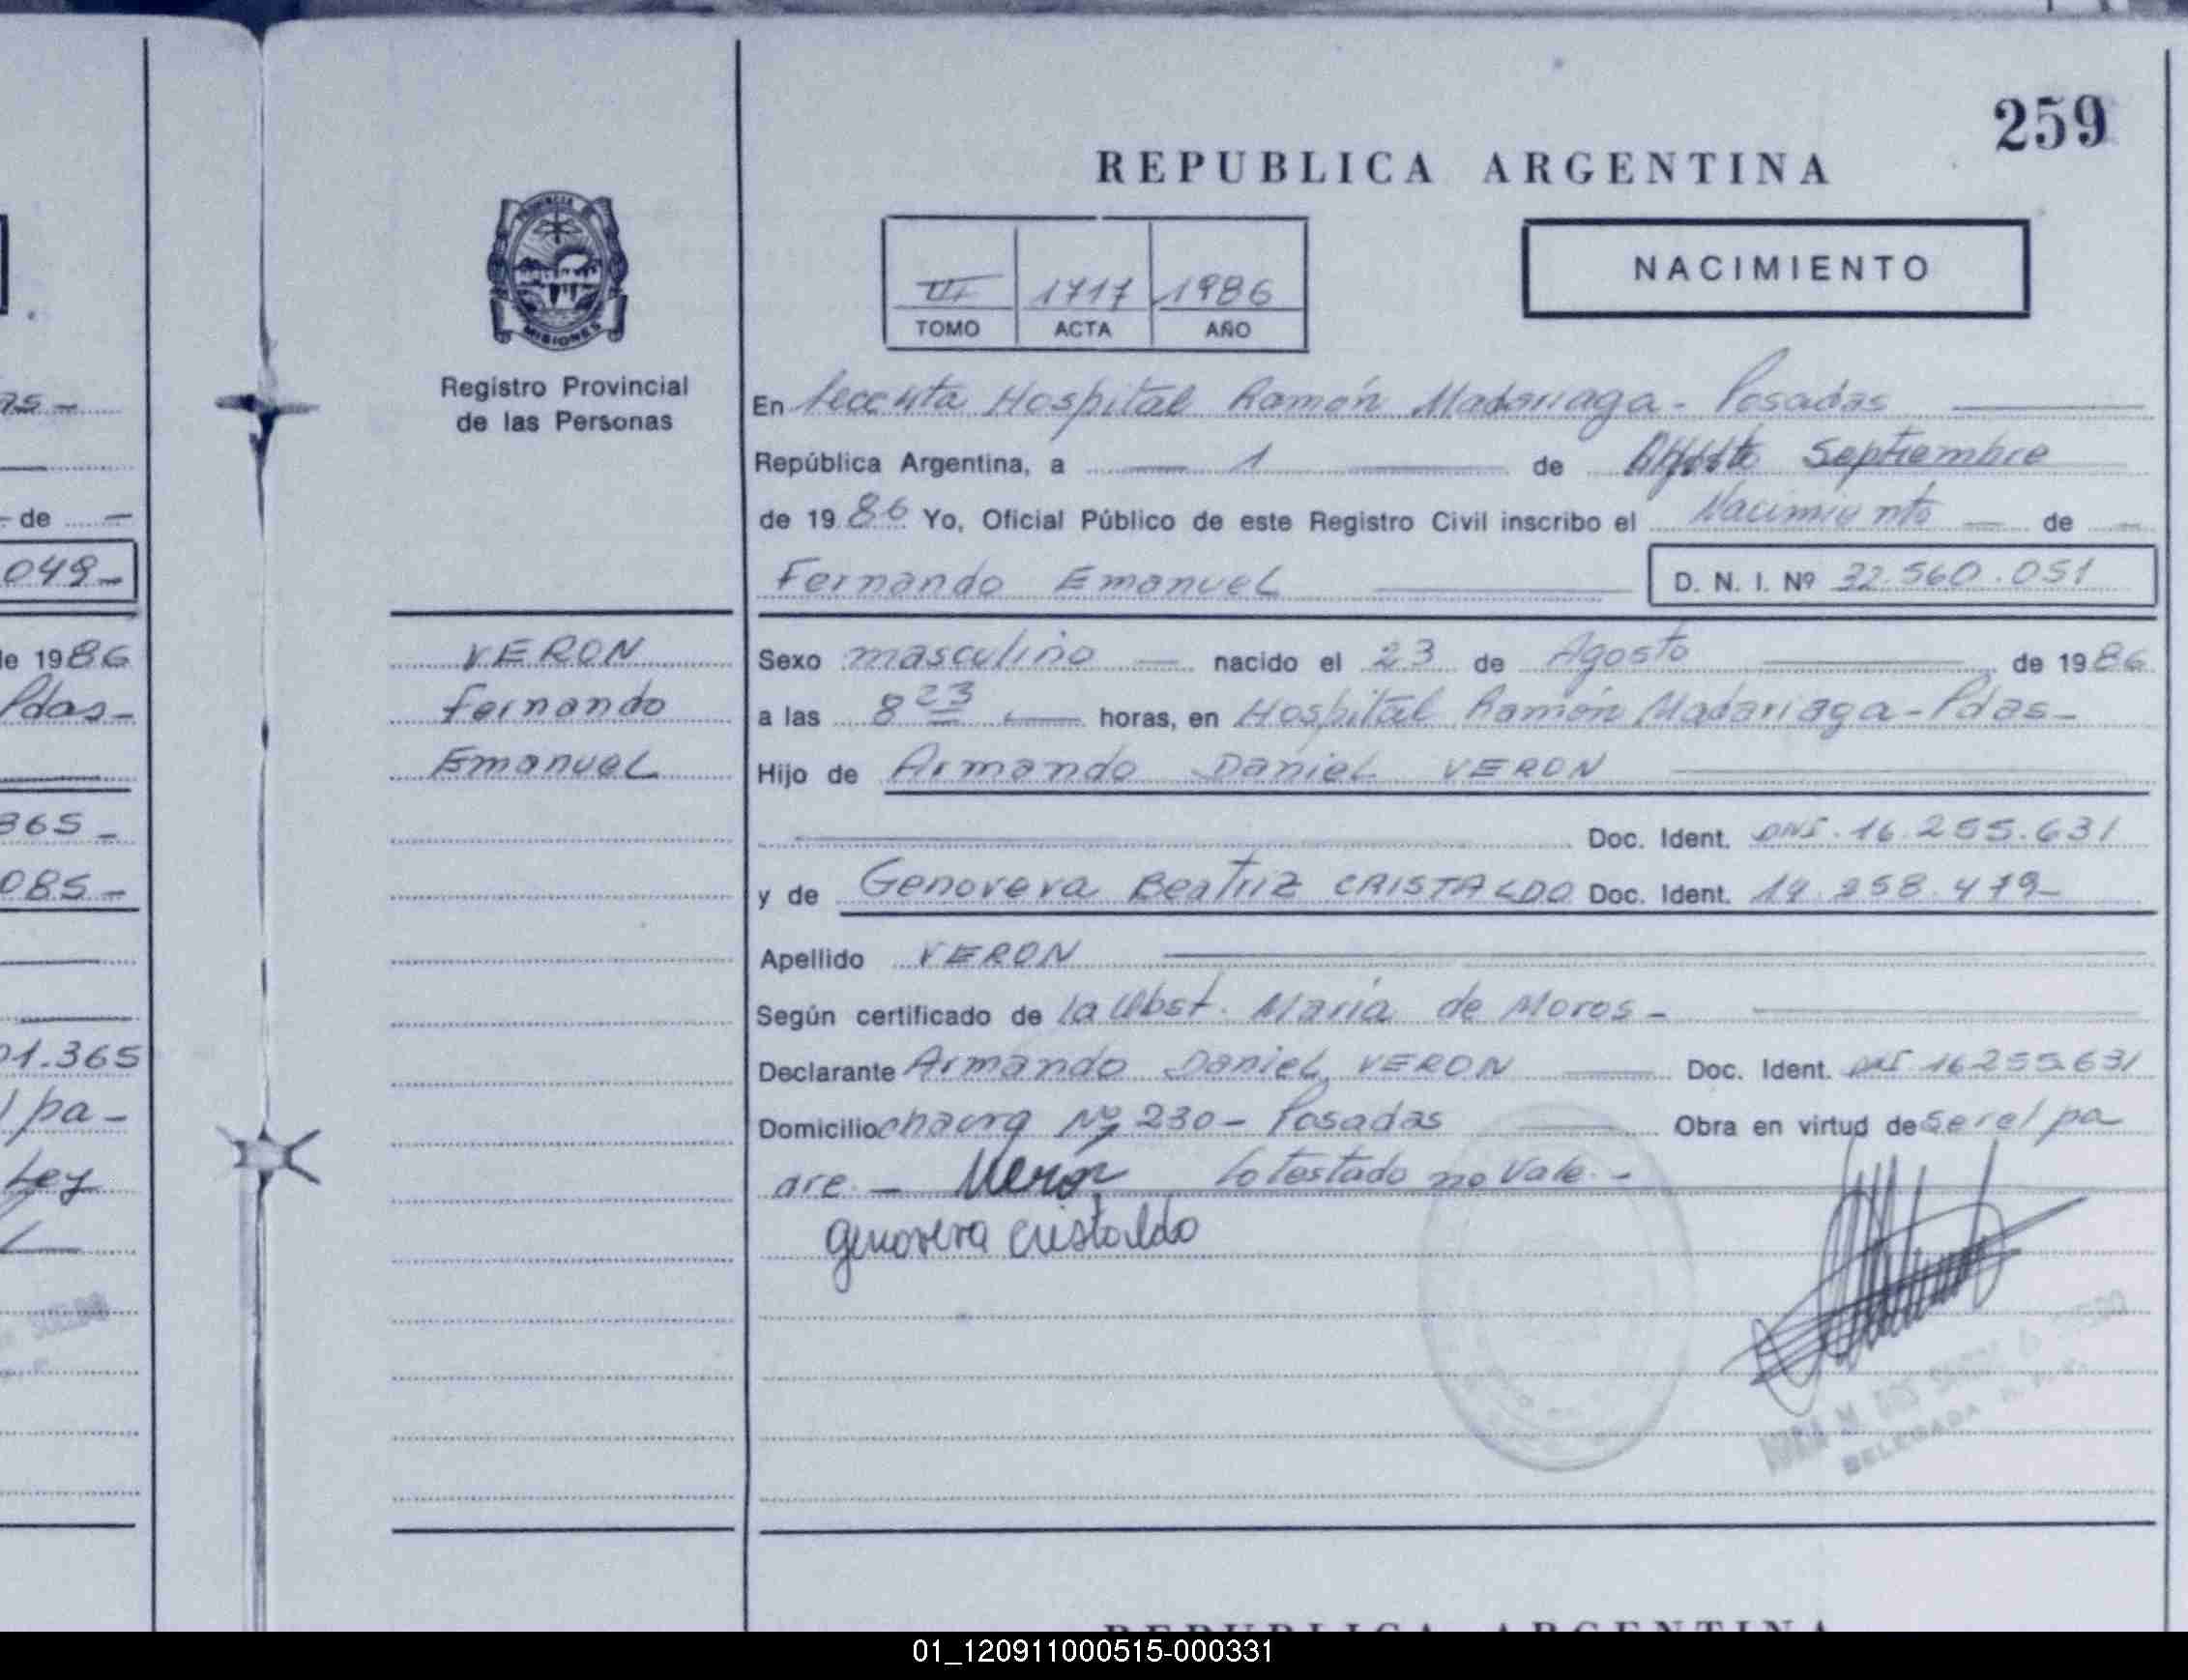 259
REPUBLICA ARGENTINA
NACIMIENTO
PROVINCIA DE
MISIONES
Registro Provincial
de las Personas
III 1717 1986
TOMO ACTA AÑO
En Hospital Ramón Madariaga - Posadas
República Argentina, a 1 de Septiembre
de 1986 Yo, Oficial Público de este Registro Civil inscribo el Nacimiento de
Fernando Emanuel D. N. I. Nº 32.560.051
VERON
Fernando
Emanuel
Sexo masculino nacido el 23 de Agosto de 1986
a las 8 23 horas, en Hospital Ramón Madariaga - Pdas -
Hijo de Armando Daniel VERON
Doc. Ident. DNI. 16.255.631
y de Genoveva Beatriz CRISTALDO Doc. Ident.
Apellido VERON
Según certificado de la Obst. María de Moros -
Declarante Armando Daniel VERON Doc. Ident. DNI 16.255.631
Domicilio chacra Nº 230 - Posadas Obra en virtud de ser el pa
dre. - Verón lo testado no vale. -
genoveva cristaldo
75 -
- de -
049 -
de 1986
Pdas -
365 -
085 -
01.365
l pa -
Ley
REPUBLICA ARGENTINA
01_120911000515-000331